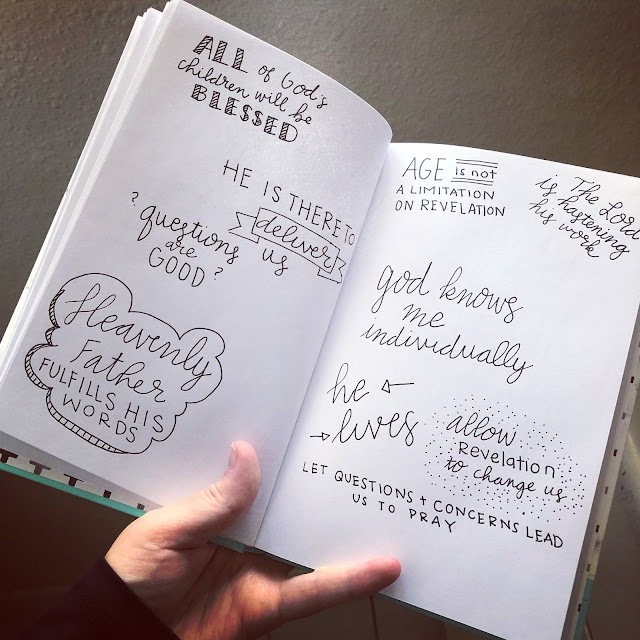 ALL of God's
children will be
BLESSED
HE IS THERE TO
deliver
us
? questions
are
GOOD ?
Heavenly
Father
FULFILLS HIS
WORDS
AGE is not
A LIMITATION
ON REVELATION
The Lord
is hastening
his work
god knows
me
individually
he
lives
allow
Revelation
to change us
LET QUESTIONS + CONCERNS LEAD
US TO PRAY